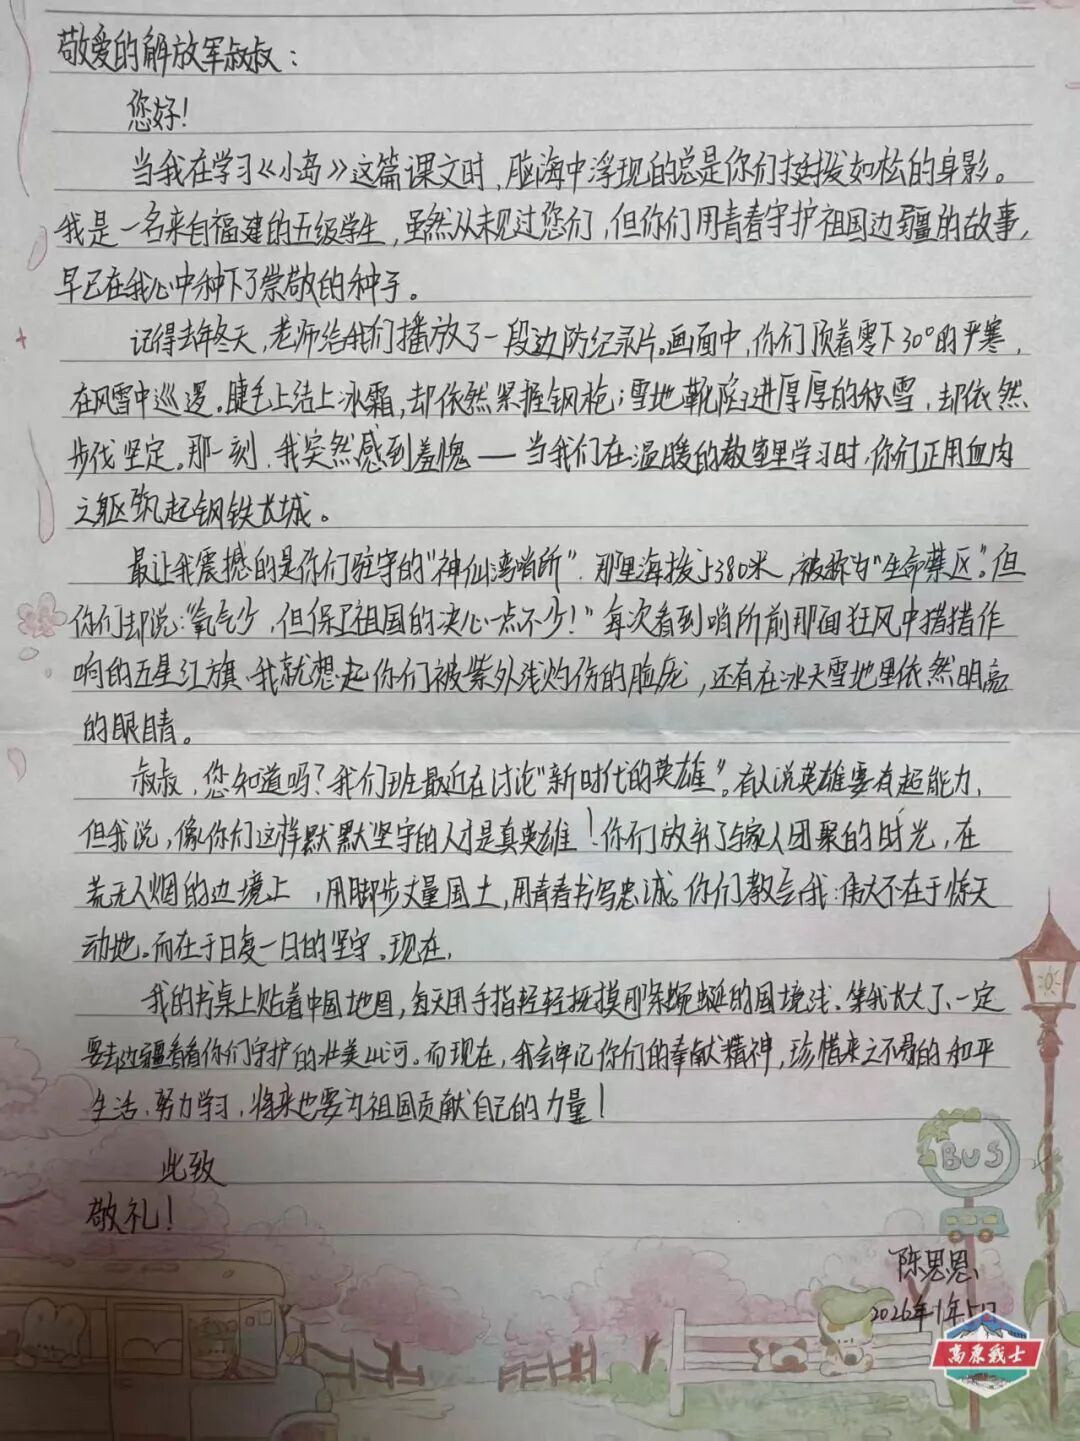 敬爱的解放军叔叔：
您好！
当我在学习《小岛》这篇课文时，脑海中浮现的总是你们挺拔如松的身影。
我是一名来自福建的五级学生，虽然从未见过您们，但你们用青春守护祖国边疆的故事，
早已在我心中种下了崇敬的种子。
记得去年冬天，老师给我们播放了一段边防纪录片。画面中，你们顶着零下30°的严寒，
在风雪中巡逻。睫毛上结上冰霜，却依然紧握钢枪；雪地靴陷进厚厚的积雪，却依然
步伐坚定。那一刻，我突然感到羞愧——当我们在温暖的教室里学习时，你们正用血肉
之躯筑起钢铁长城。
最让我震撼的是你们驻守的"神仙湾哨所"。那里海拔5380米，被称为"生命禁区"。但
你们却说："氧气少，但保卫祖国的决心一点不少！"每次看到哨所前那面狂风中猎猎作
响的五星红旗，我就想起你们被紫外线灼伤的脸庞，还有在冰天雪地里依然明亮
的眼睛。
叔叔，您知道吗？我们班最近在讨论"新时代的英雄"。有人说英雄要有超能力，
但我说，像你们这样默默坚守的人才是真英雄！你们放弃了与家人团聚的时光，在
荒无人烟的边境上，用脚步丈量国土，用青春书写忠诚。你们教会我：伟大不在于惊天
动地。而在于日复一日的坚守。现在，
我的书桌上贴着中国地图，每天用手指轻轻抚摸那条蜿蜒的国境线。等我长大了、一定
要去边疆看看你们守护的壮美山河。而现在，我会牢记你们的奉献精神，珍惜来之不易的和平
生活、努力学习，将来也要为祖国贡献自己的力量！
此致
敬礼！
陈思恩
2026年1年5日
BUS
高原战士